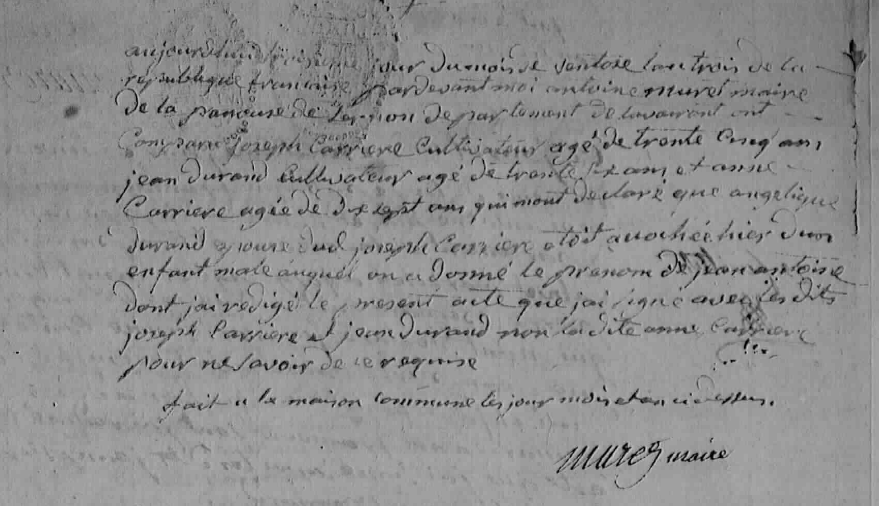 aujourdhui troisieme jour du mois de ventose lan trois de la
republique francaise pardevant moi antoine muret maire
de la paroisse de departement de laveiront ont
Comparu joseph Carriere Cultivateur agé de trente Cinq ans
jean durand Cultivateur agé de trente six ans et anne
Carriere agée de dixsept ans qui mont declaré que angelique
durand epouse dud joseph Carriere etoit acochée hier dun
enfant male auquel on a donné le prenom de jean antoine
dont jai redigé le present acte que jai signé avec les dits
joseph Carriere et jean durand non la dite anne Carriere
pour ne savoir de ce requise
fait a la maison Commune les jour mois et an ci dessus.
muret maire